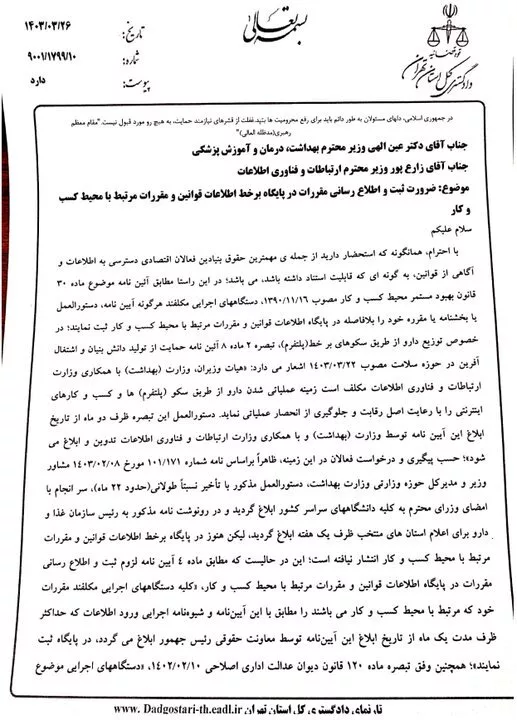 بسمه تعالی
قوه قضائیه
دادگستری کل استان تهران
تاریخ: ۱۴۰۳/۰۳/۲۶
شماره: ۹۰۰۱/۱۷۹۹/۱۰
پیوست: دارد
در جمهوری اسلامی، دلهای مسئولان به طور دائم باید برای رفع محرومیت ها بتپد. غفلت از قشرهای نیازمند حمایت، به هیچ رو مورد قبول نیست. "مقام معظم
رهبری(مدظله العالی)"
جناب آقای دکتر عین الهی وزیر محترم بهداشت، درمان و آموزش پزشکی
جناب آقای زارع پور وزیر محترم ارتباطات و فناوری اطلاعات
موضوع: ضرورت ثبت و اطلاع رسانی مقررات در پایگاه برخط اطلاعات قوانین و مقررات مرتبط با محیط کسب
و کار
سلام علیکم
با احترام، همانگونه که استحضار دارید از جمله ی مهمترین حقوق بنیادین فعالان اقتصادی دسترسی به اطلاعات و
آگاهی از قوانین، به گونه ای که قابلیت استناد داشته باشد، می باشد؛ در این راستا مطابق آئین نامه موضوع ماده ۳۰
قانون بهبود مستمر محیط کسب و کار مصوب ۱۳۹۰/۱۱/۱۶، دستگاههای اجرایی مکلفند هرگونه آیین نامه، دستورالعمل
یا بخشنامه یا مقرره خود را بلافاصله در پایگاه اطلاعات قوانین و مقررات مرتبط با محیط کسب و کار ثبت نمایند؛ در
خصوص توزیع دارو از طریق سکوهای بر خط(پلتفرم)، تبصره ۲ ماده ۸ آئین نامه حمایت از تولید دانش بنیان و اشتغال
آفرین در حوزه سلامت مصوب ۱۴۰۳/۰۳/۲۲ اشعار می دارد: «هیات وزیران، وزارت (بهداشت) با همکاری وزارت
ارتباطات و فناوری اطلاعات مکلف است زمینه عملیاتی شدن دارو از طریق سکو (پلتفرم) ها و کسب و کارهای
اینترنتی را با رعایت اصل رقابت و جلوگیری از انحصار عملیاتی نماید. دستورالعمل این تبصره ظرف دو ماه از تاریخ
ابلاغ این آیین نامه توسط وزارت (بهداشت) و با همکاری وزارت ارتباطات و فناوری اطلاعات تدوین و ابلاغ می
شود»؛ حسب پیگیری و درخواست فعالان در این زمینه، ظاهراً براساس نامه شماره ۱۰۱/۱۷۱ مورخ ۱۴۰۳/۰۲/۰۸ مشاور
وزیر و مدیرکل حوزه وزارتی وزارت بهداشت، دستورالعمل مذکور با تأخیر نسبتاً طولانی(حدود ۲۲ ماه)، سر انجام با
امضای وزرای محترم به کلیه دانشگاههای سراسر کشور ابلاغ گردید و در رونوشت نامه مذکور به رئیس سازمان غذا و
دارو برای اعلام استان های منتخب ظرف یک هفته ابلاغ گردید، لیکن هنوز در پایگاه برخط اطلاعات قوانین و مقررات
مرتبط با محیط کسب و کار انتشار نیافته است؛ این در حالیست که مطابق ماده ٤ آیین نامه لزوم ثبت و اطلاع رسانی
مقررات در پایگاه اطلاعات قوانین و مقررات مرتبط با محیط کسب و کار، «کلیه دستگاههای اجرایی مکلفند مقررات
خود که مرتبط با محیط کسب و کار می باشند را مطابق با این آیین‌نامه و شیوه‌نامه اجرایی ورود اطلاعات که حداکثر
ظرف مدت یک ماه از تاریخ ابلاغ این آیین‌نامه توسط معاونت حقوقی رئیس جمهور ابلاغ می گردد، در پایگاه ثبت
نمایند»؛ همچنین وفق تبصره ماده ۱۲۰ قانون دیوان عدالت اداری اصلاحی ۱۴۰۲/۰۲/۱۰، «دستگاههای اجرایی موضوع
تارنمای دادگستری کل استان تهران www. Dadgostari-th.eadl.ir